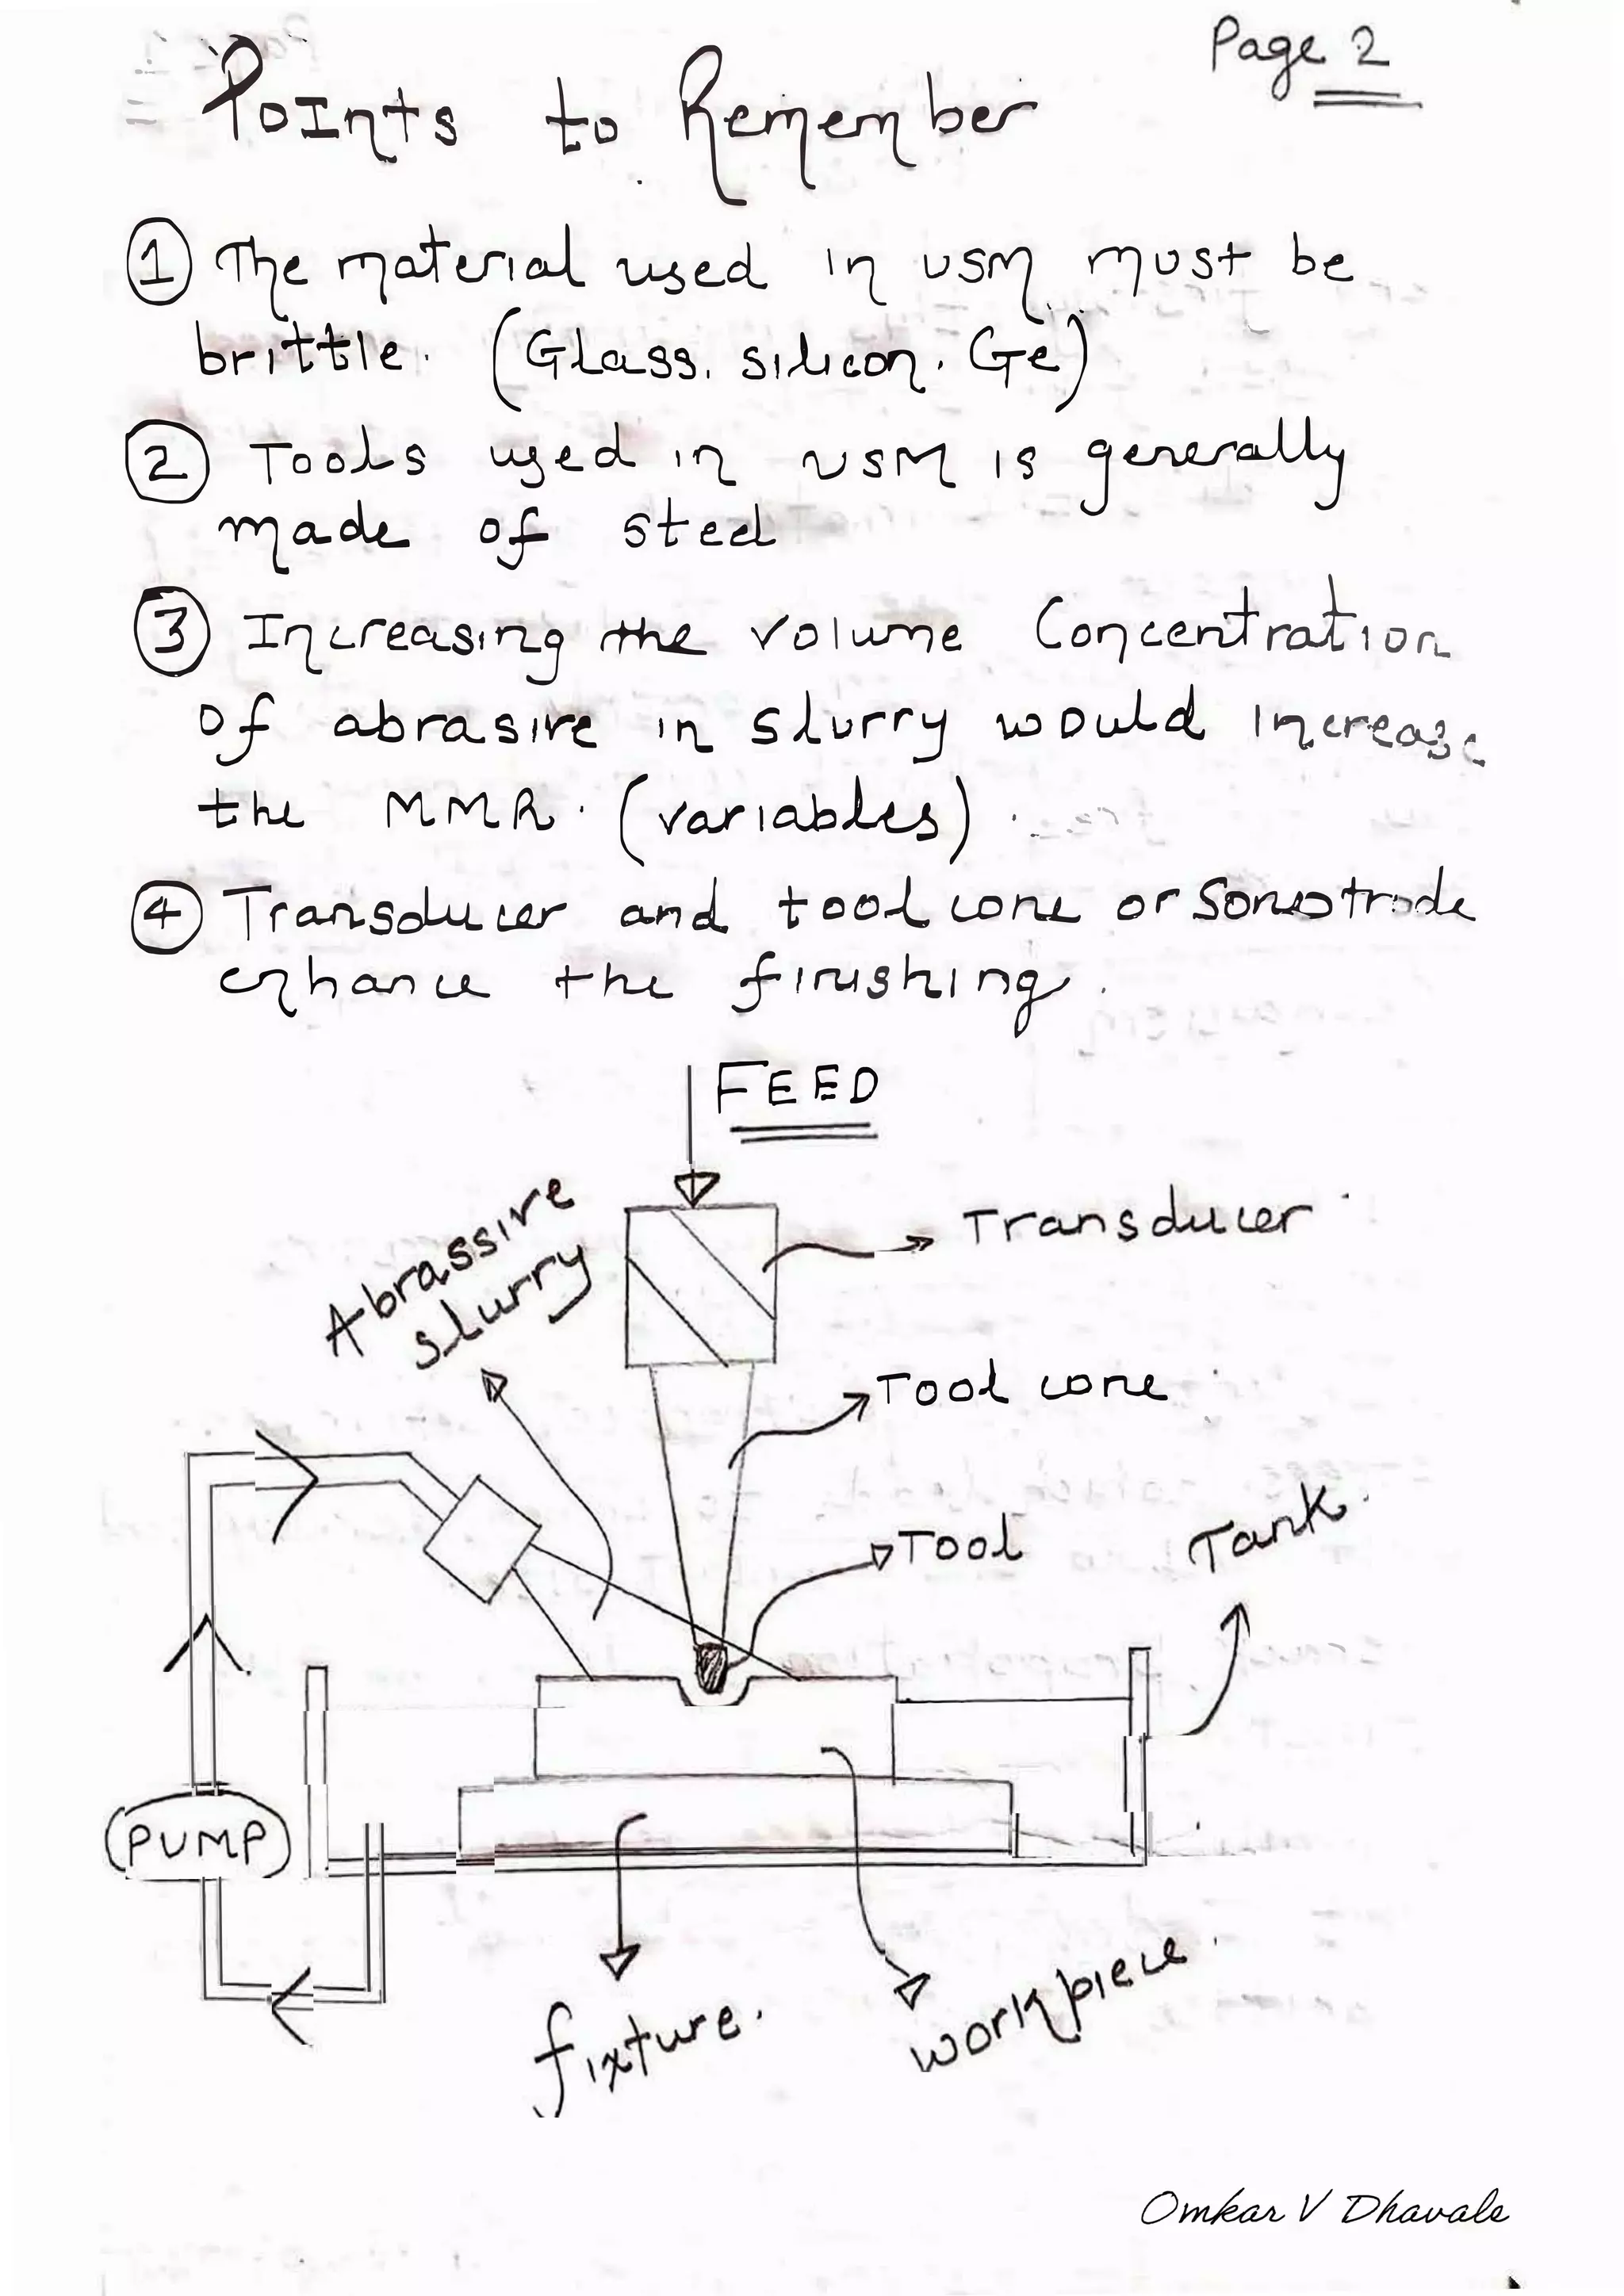 Page 2
Points to Remember
① The material used in USM must be
brittle. (Glass, silicon, Ge)
② Tools used in USM is generally
made of steel
③ Increasing the volume Concentration
of abrasive in slurry would increase
the MMR. (variables).
④ Transducer and tool cone or Sonotrode
enhance the finishing.
FEED
Abrassive
slurry
Transducer
Tool cone
Tool
Tank.
PUMP
fixture.
workpiece.
Omkar V Dhavale